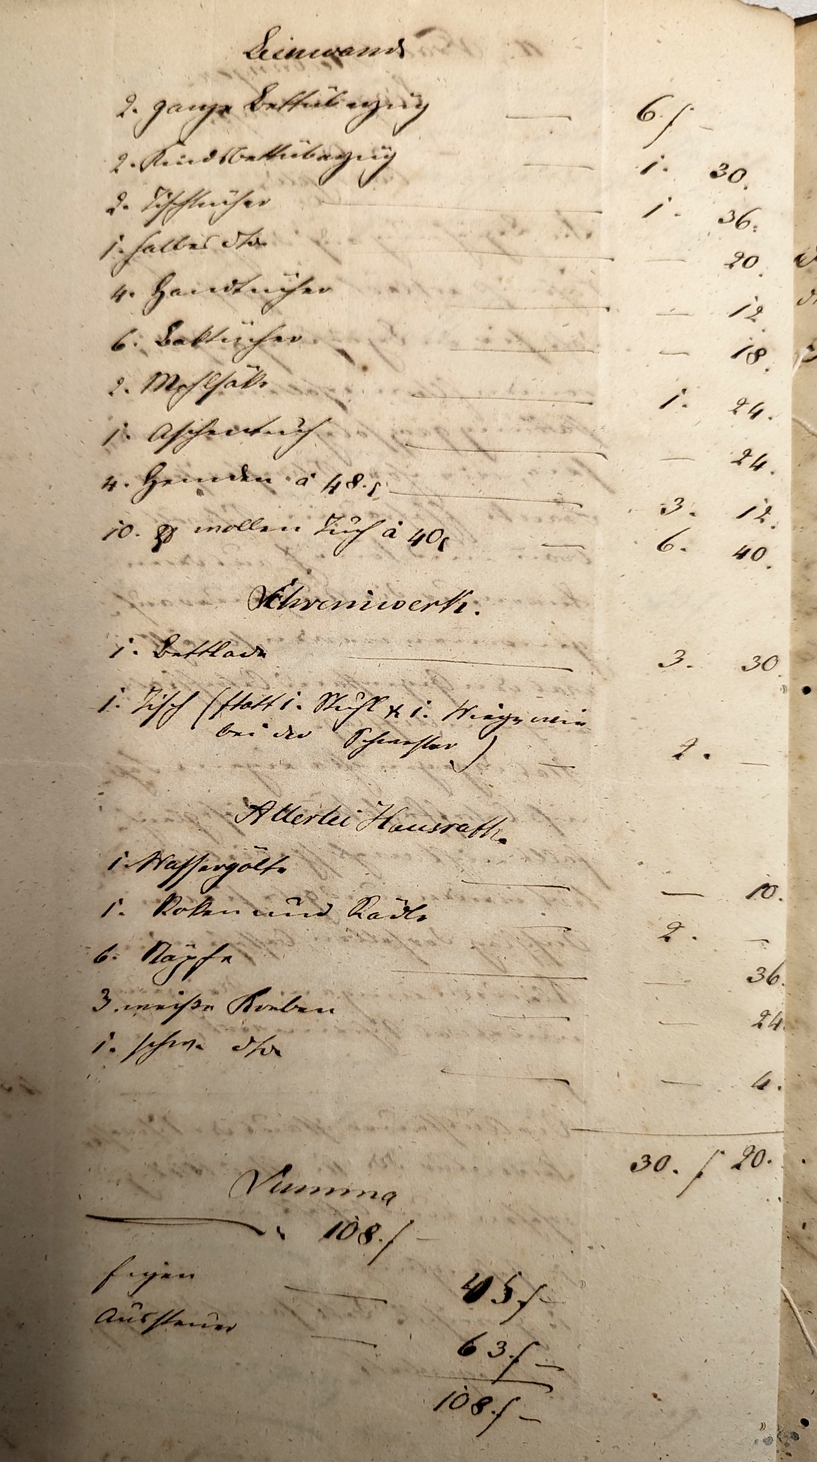 Leinwand
2. ganze Bettüberzüg — 6. f —
2. Kindsbettüberzüg — 1. 30.
2. Tischtücher — 1. 36.
1. halbes dto — — 20.
4. Handtücher — — 12.
6. Baktücher — — 18.
2. Mehlsäk — 1. 24.
1. Aschentuch — — 24.
4. Hemden à 48. — 3. 12.
10. wollen Tuch à 40 — 6. 40.
Schreinwerk.
1. Bettlade — 3. 30.
1. Tisch (statt 1. Stuhl & 1. Wiege wie
bei der Schwester) — 2. —
Allerlei Hausrath.
1. Wassergölte — — 10.
1. Roken und Rädle — 2. —
6. Näpfe — — 36.
3. weiße — 24
1. schw. dto — — 4.
30. f 20.
Summa
108. f —
eigen — 45 f —
Aussteuer — 63. f —
108. f —